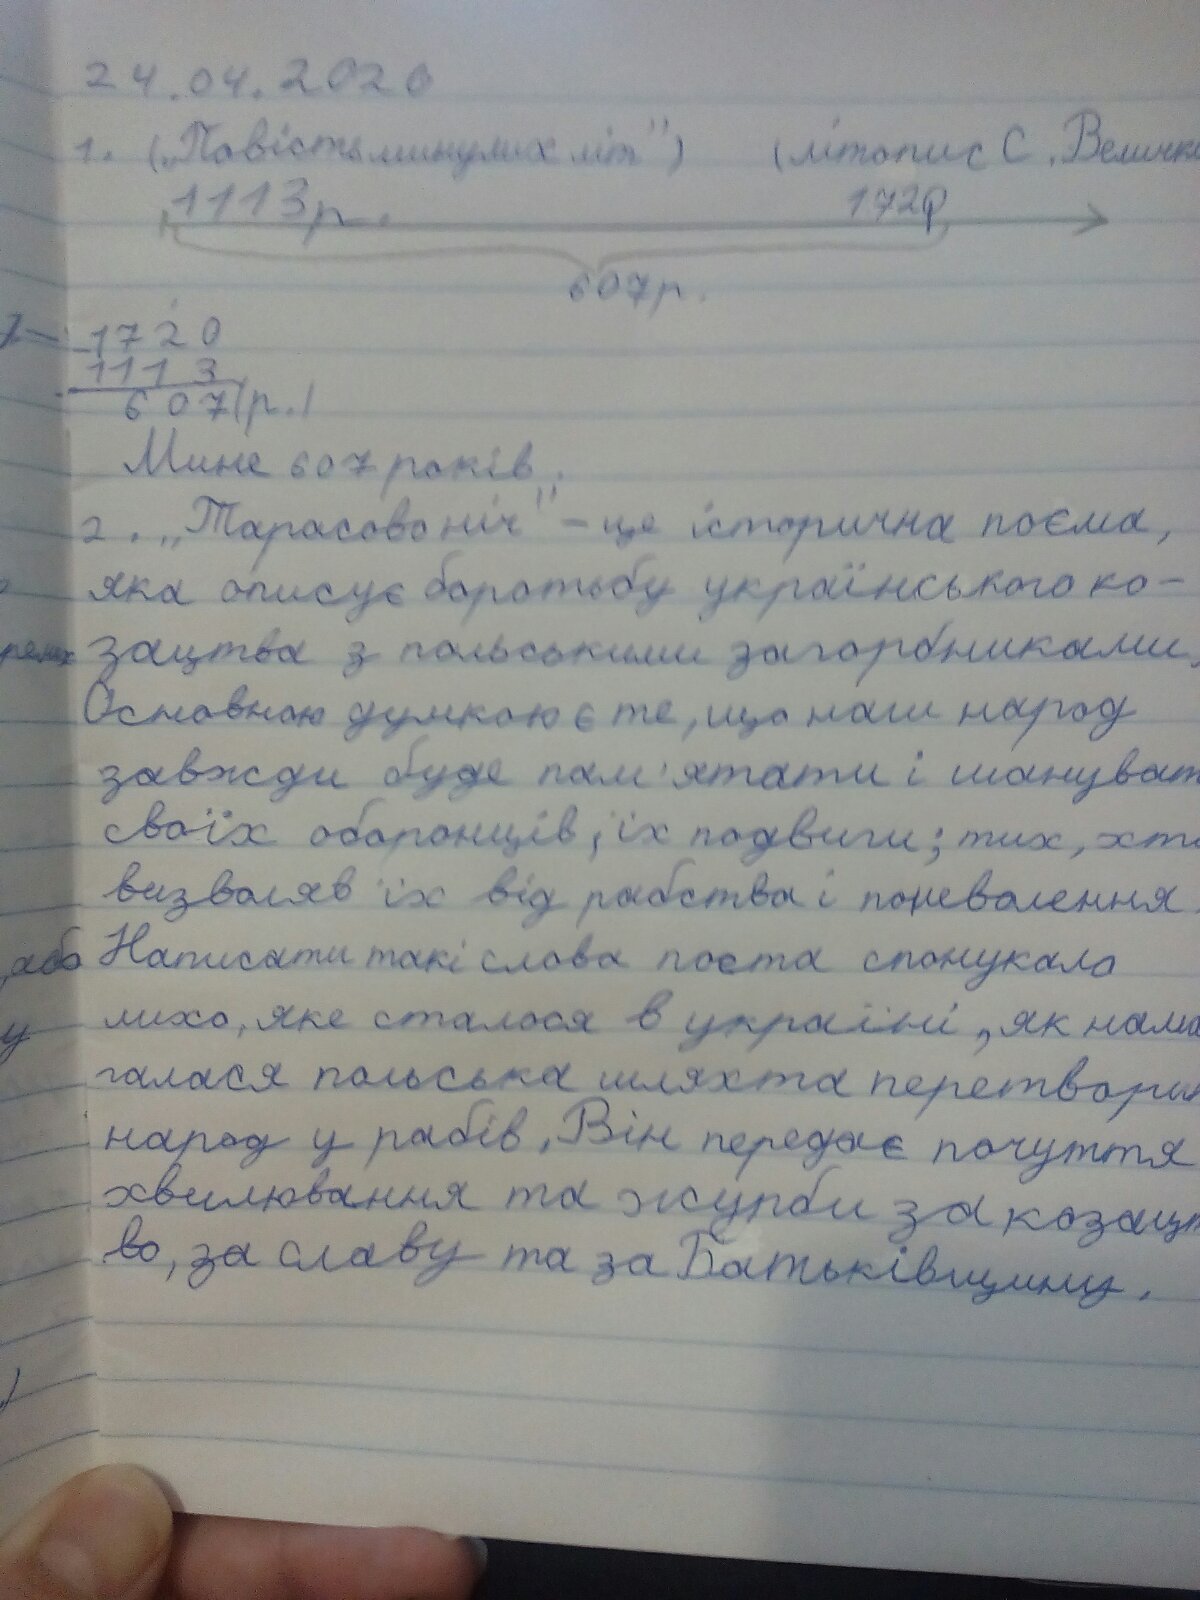 24.04.2020
1. („Повість минулих літ") (літопис С. Величка
1113р. 1720р
607р.
1720
1113
607(р.)
Мине 607 років.
2. „Тарасова ніч" – це історична поєма,
яка описує боротьбу українського ко-
зацтва з польськими загорбниками.
Основною думкою є те, що наш народ
завжди буде пам'ятати і шануват
своїх оборонців, їх подвиги; тих, хто
визволяв їх від рабства і поневолення
або Написати такі слова поета спонукало
у лихо, яке сталося в україні, як нама
галася польська шляхта перетвори
народ у рабів. Він передає почуття
хвилювання та журби за козацт
во, за славу та за Батьківщину.